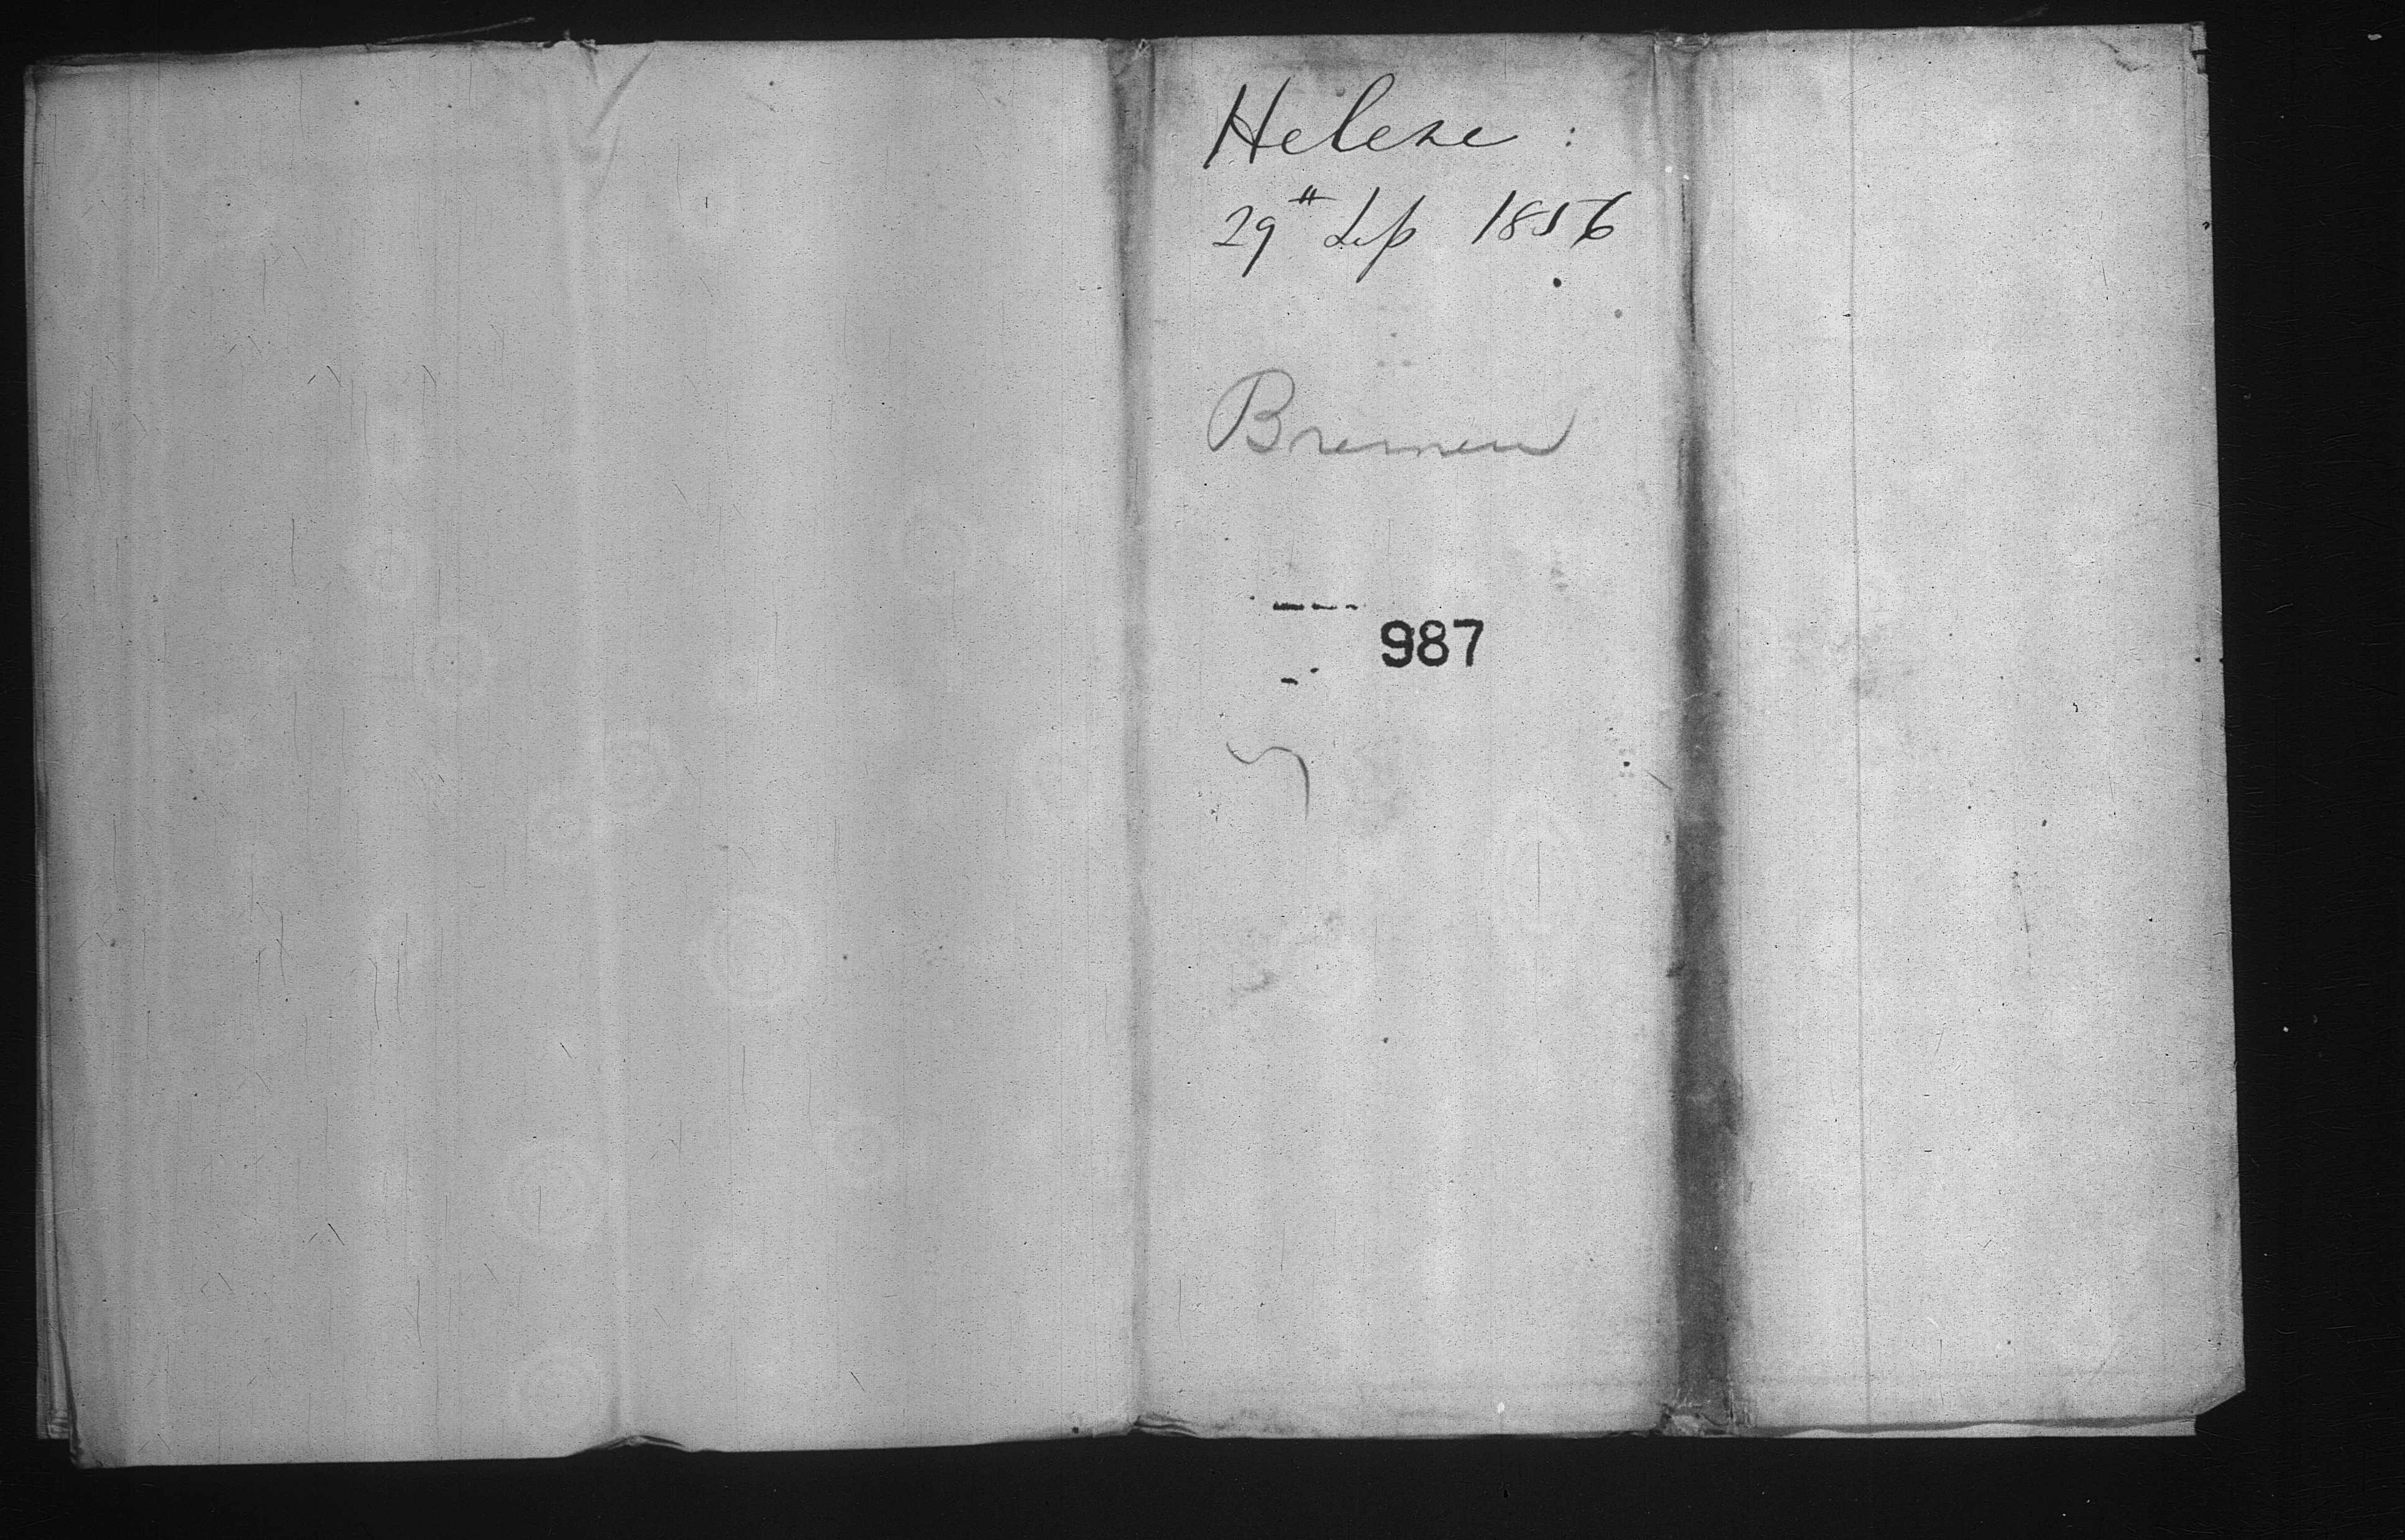 Helene :
29th Sep 1856
Bremen
987